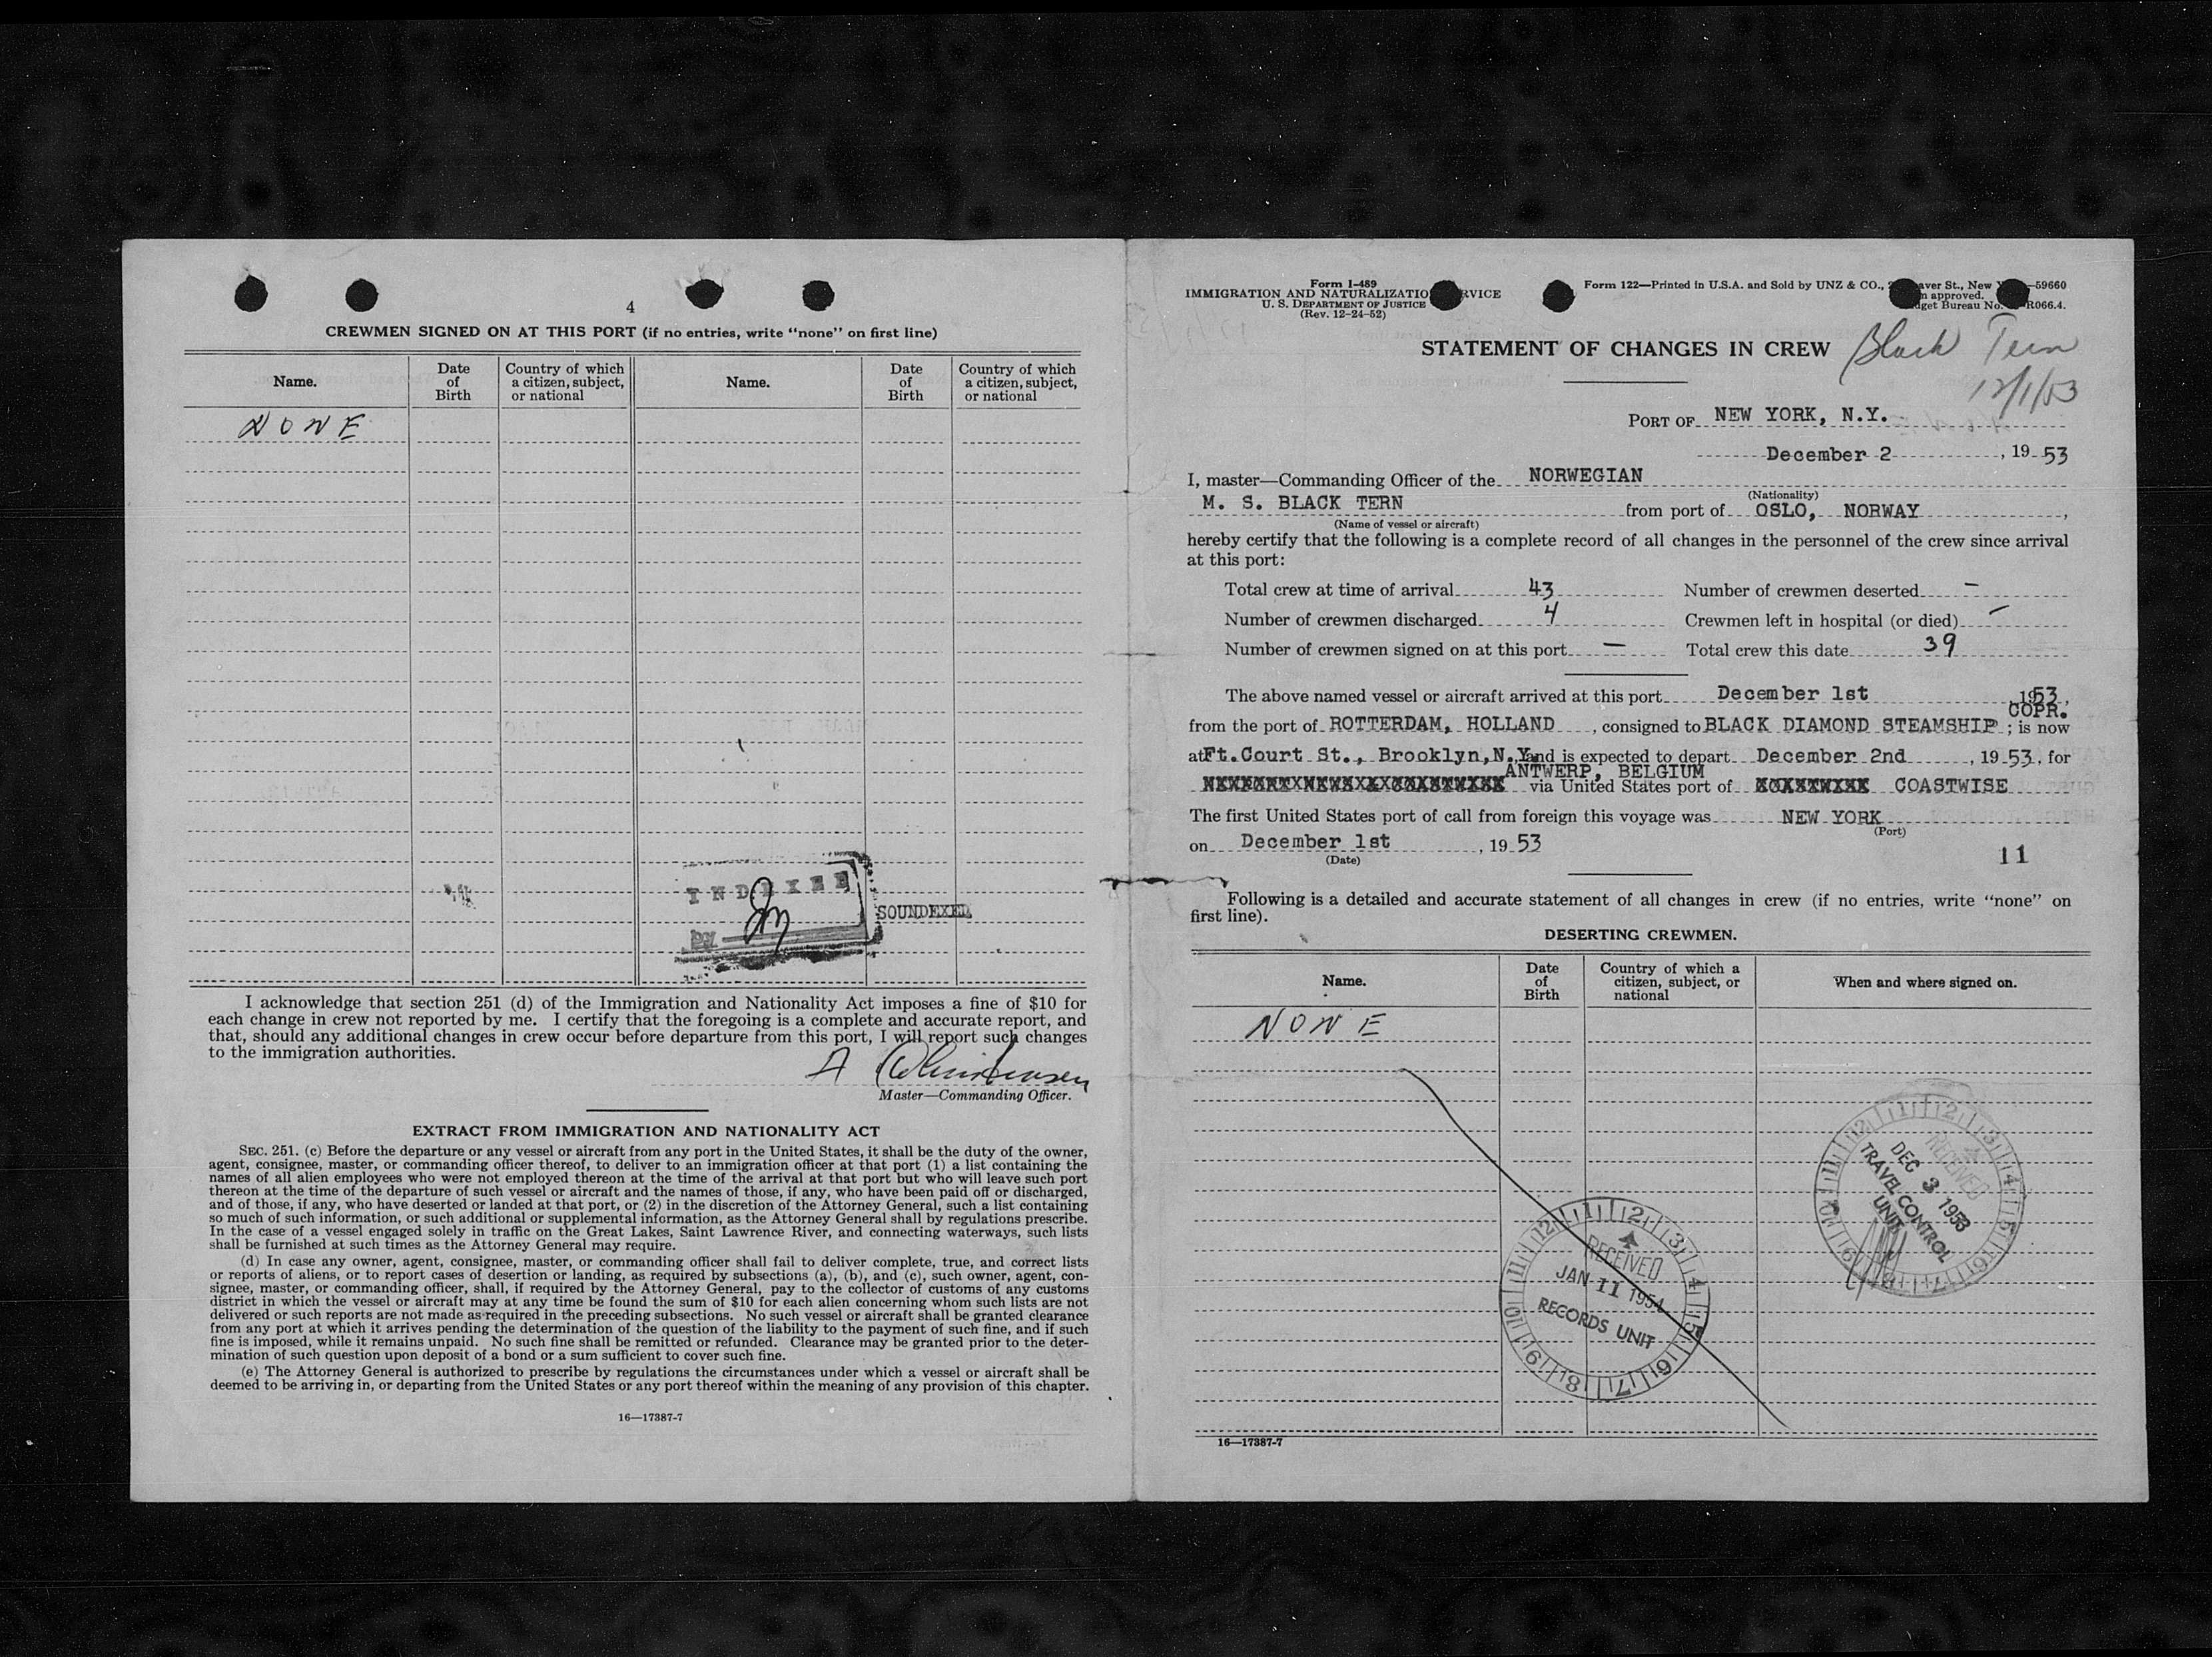 4
CREWMEN SIGNED ON AT THIS PORT (if no entries, write “none” on first line)
Name. Date of Birth Country of which a citizen, subject, or national Name. Date of Birth Country of which a citizen, subject, or national
NONE
INDEXED
by
SOUNDEXED
I acknowledge that section 251 (d) of the Immigration and Nationality Act imposes a fine of $10 for
each change in crew not reported by me. I certify that the foregoing is a complete and accurate report, and
that, should any additional changes in crew occur before departure from this port, I will report such changes
to the immigration authorities.
A Christensen
Master—Commanding Officer.
EXTRACT FROM IMMIGRATION AND NATIONALITY ACT
SEC. 251. (c) Before the departure or any vessel or aircraft from any port in the United States, it shall be the duty of the owner,
agent, consignee, master, or commanding officer thereof, to deliver to an immigration officer at that port (1) a list containing the
names of all alien employees who were not employed thereon at the time of the arrival at that port but who will leave such port
thereon at the time of the departure of such vessel or aircraft and the names of those, if any, who have been paid off or discharged,
and of those, if any, who have deserted or landed at that port, or (2) in the discretion of the Attorney General, such a list containing
so much of such information, or such additional or supplemental information, as the Attorney General shall by regulations prescribe.
In the case of a vessel engaged solely in traffic on the Great Lakes, Saint Lawrence River, and connecting waterways, such lists
shall be furnished at such times as the Attorney General may require.
(d) In case any owner, agent, consignee, master, or commanding officer shall fail to deliver complete, true, and correct lists
or reports of aliens, or to report cases of desertion or landing, as required by subsections (a), (b), and (c), such owner, agent, con-
signee, master, or commanding officer, shall, if required by the Attorney General, pay to the collector of customs of any customs
district in which the vessel or aircraft may at any time be found the sum of $10 for each alien concerning whom such lists are not
delivered or such reports are not made as required in the preceding subsections. No such vessel or aircraft shall be granted clearance
from any port at which it arrives pending the determination of the question of the liability to the payment of such fine, and if such
fine is imposed, while it remains unpaid. No such fine shall be remitted or refunded. Clearance may be granted prior to the deter-
mination of such question upon deposit of a bond or a sum sufficient to cover such fine.
(e) The Attorney General is authorized to prescribe by regulations the circumstances under which a vessel or aircraft shall be
deemed to be arriving in, or departing from the United States or any port thereof within the meaning of any provision of this chapter.
16—17387-7
Form I-489
IMMIGRATION AND NATURALIZATIO RVICE
U. S. DEPARTMENT OF JUSTICE
(Rev. 12-24-52)
Form 122—Printed in U.S.A. and Sold by UNZ & CO., aver St., New —59660
approved.
get Bureau No. R066.4.
STATEMENT OF CHANGES IN CREW
Black Tern
12/1/53
PORT OF NEW YORK, N.Y.
December 2, 1953
I, master—Commanding Officer of the NORWEGIAN
(Nationality)
M. S. BLACK TERN from port of OSLO, NORWAY,
(Name of vessel or aircraft)
hereby certify that the following is a complete record of all changes in the personnel of the crew since arrival
at this port:
Total crew at time of arrival 43 Number of crewmen deserted –
Number of crewmen discharged 4 Crewmen left in hospital (or died) –
Number of crewmen signed on at this port – Total crew this date 39
The above named vessel or aircraft arrived at this port December 1st 1953,
from the port of ROTTERDAM, HOLLAND, consigned to BLACK DIAMOND STEAMSHIP COPR.; is now
at Ft.Court St., Brooklyn,N.Y. and is expected to depart December 2nd, 1953, for
ANTWERP, BELGIUM via United States port of COASTWISE
The first United States port of call from foreign this voyage was NEW YORK
(Port)
on December 1st, 1953
(Date)
11
Following is a detailed and accurate statement of all changes in crew (if no entries, write “none” on
first line).
DESERTING CREWMEN.
Name. Date of Birth Country of which a citizen, subject, or national When and where signed on.
NONE
RECEIVED
DEC 3 1953
TRAVEL CONTROL
UNIT
RECEIVED
JAN 11 1954
RECORDS UNIT
16—17387-7